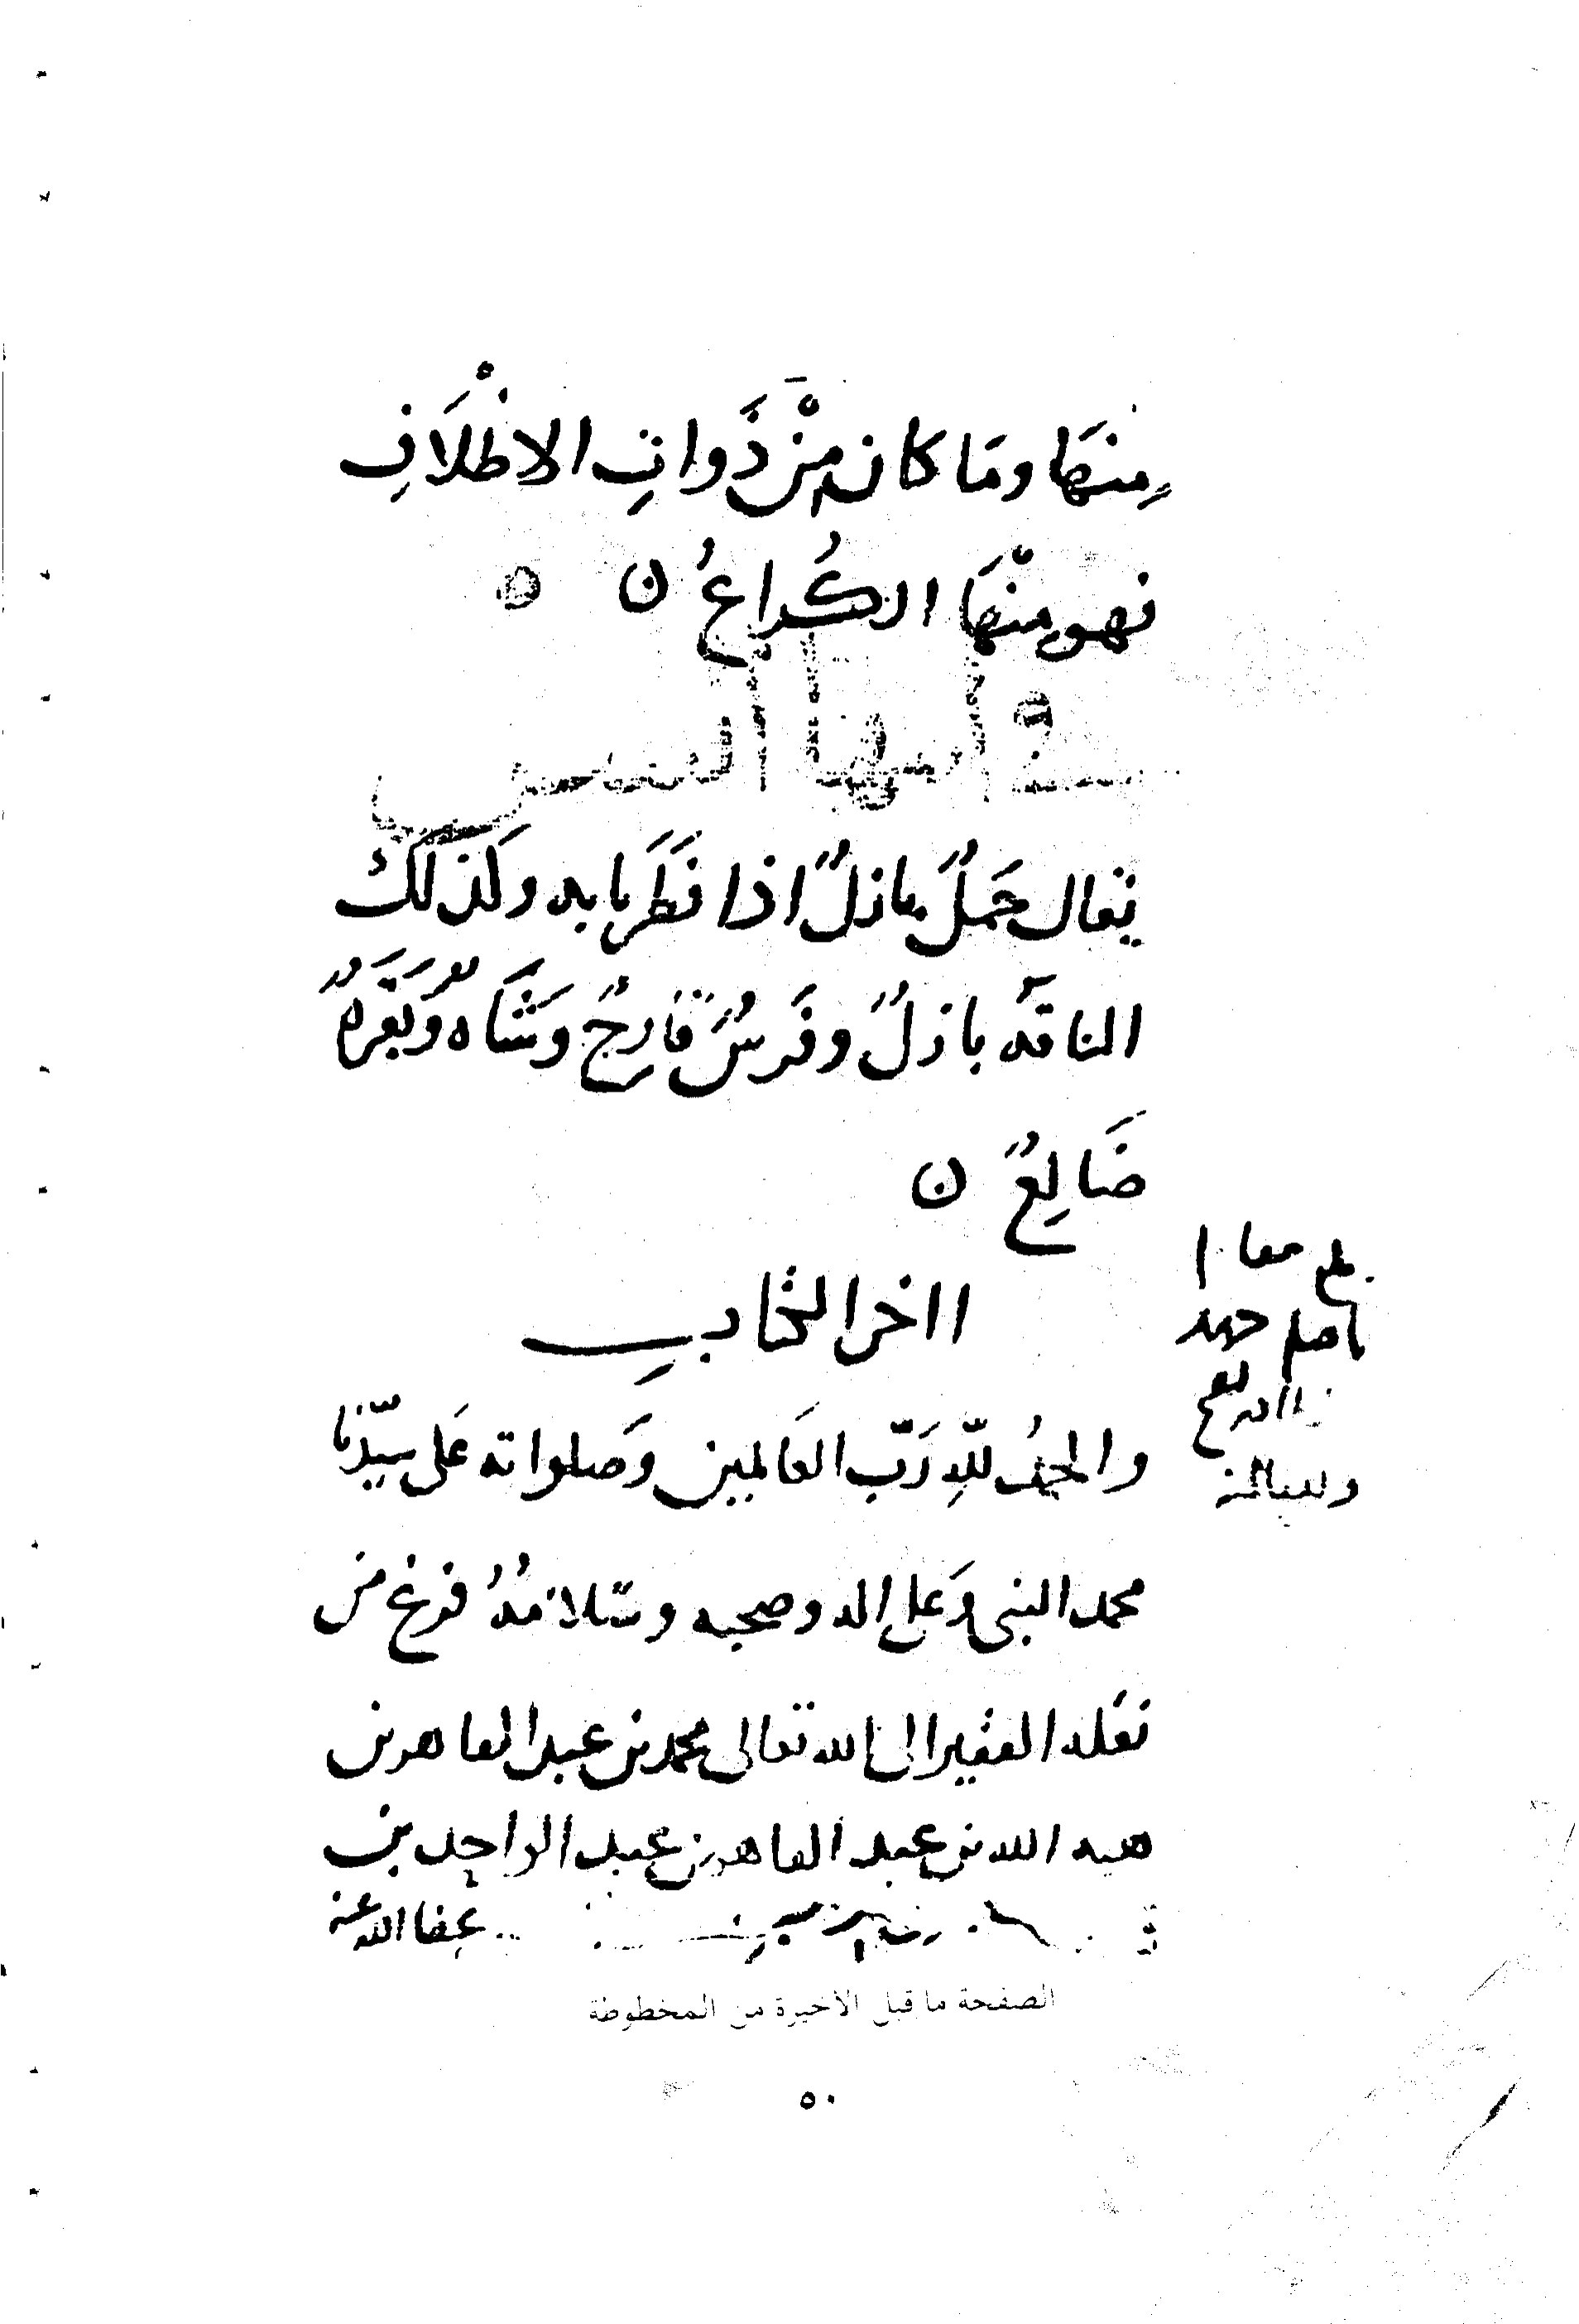 مِنهَا ومَا كان مِنْ ذَواتِ الاظْلَافِ
فهو مِنْهَا الكُراعُ ن ه
يقال جَمَلٌ بازلٌ اذا فَطَر نابه وكذلك
الناقه بازلٌ وفَرسٌ قَارِحٌ وشَاه وبَقَرَهٌ
ضَالِعٌ ن
ااخر الكتابِ
والحمدُ للّهِ رَبّ العَالمين وَصلواته عَلى سيّدنا
محمد النبي وَعلى اله وصحبه وسَلامُهُ فرغ من
نقله الفقير الى الله تعالى محمد بن عبد القاهر بن
هبه الله بن عبد القاهر بن عبد الواحد بن
عفا الله عنه
الصفحة ما قبل الأخيرة من المخطوطة
٥٠